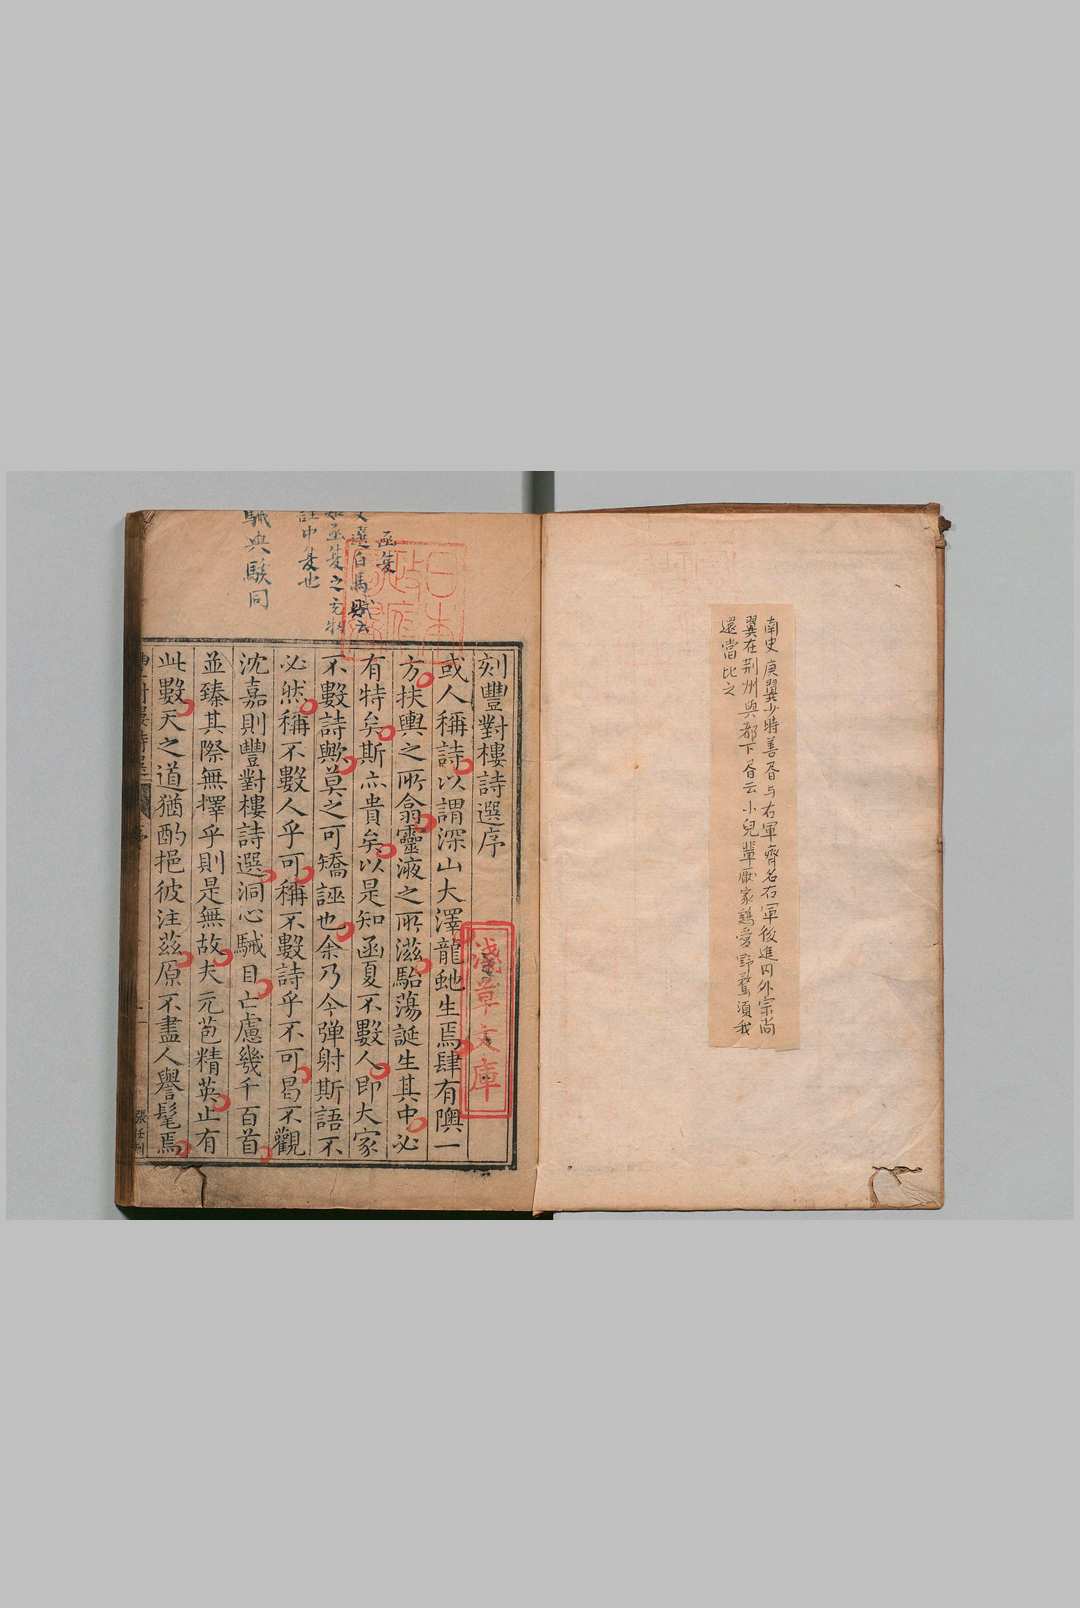 南史庾翼少時善書与右軍齊名右軍後進内外宗尚
翼在荆州與都下書云小兒輩厭家鷄愛野鶩須我
還當比之
日本
政府
圖書
函夏
文選白馬賦云
函夏之充牣
註中夏也
駴與駭同
刻豐對樓詩選序
或人稱詩以謂深山大澤龍虵生焉肆有隩一
方扶輿之所翕靈液之所滋駘蕩誕生其中必
有特矣斯亦貴矣以是知函夏不數人即大家
不數詩歟莫之可矯誣也余乃今彈射斯語不
必然稱不數人乎可稱不數詩乎不可曷不觀
沈嘉則豐對樓詩選洞心駴目亡慮幾千百首
並臻其際無擇乎則是無故夫元苞精英止有
此數天之道猶酌挹彼注茲原不盡人譽髦焉
淺草文庫
豐對樓詩選
序
一
張任刊